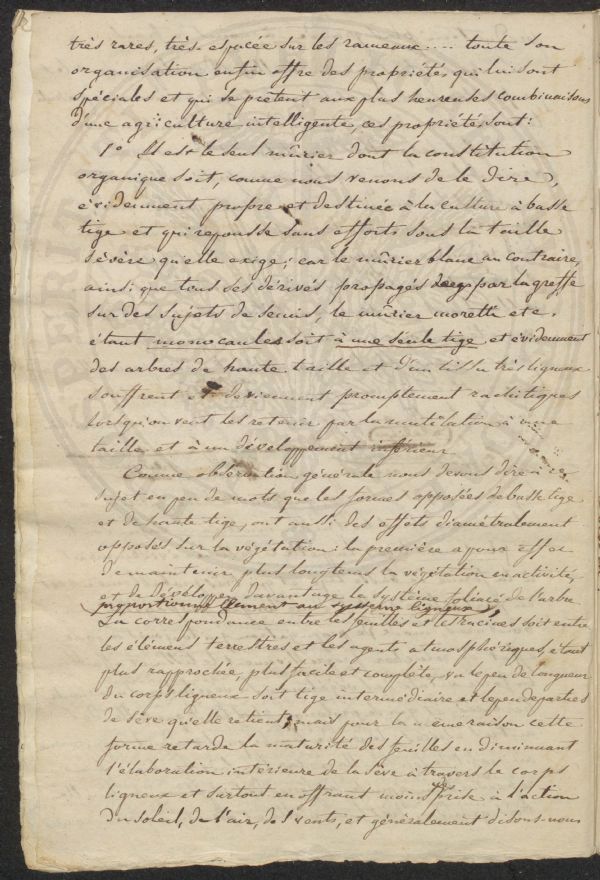 très rares, très espacée sur les rameaux .... toute son
organisation enfin offre des propriétés qui lui sont
spéciales et qui se prètent aux plus heureuses combinaisons
d'une agriculture intelligente, ces propriétés sont:
1° Il est le seul mûrier dont la constitution
organique soit, comme nous venons de le dire,
évidemment propre et destinée à la culture à basse
tige et qui repousse sans efforts sous la taille
sévère qu'elle exige; car le mûrier blanc au contraire,
ainsi que tous ses dérivés propagés par la greffe
sur des sujets de semis, le mûrier moretti etc.
étant monocaules soit à une seule tige et évidemment
des arbres de haute taille et d'un tissu très ligneux
souffrent et deviennent promptement rachitiques
lorsqu'on veut les retenir par la mutilation à une
taille et à un développement inférieur
Comme observation générale nous devons dire à ce
sujet en peu de mots que les formes opposées de basse tige
et de haute tige, ont aussi des effets diamétralement
opposés sur la végétation: la première a pour effet
de maintenir plus longtems la végétation en activité,
et de développer davantage le système foliacé de l'arbre
proportionnellement au système ligneux
La correspondance entre les feuilles et les racines soit entre
les éléments terrestres et les agents atmosphériques, étant
plus rapprochée, plus facile et complète, vu le peu de longueur
du corps ligneux soit tige intermédiaire et le peu de parties
de sève qu'elle retient; mais pour la même raison cette
forme retarde la maturité des feuilles en diminuant
l'élaboration intérieure de la sève à travers le corps
ligneux et surtout en offrant moins prise à l'action
du soleil, de l'air, des vents, et généralement disons-nous